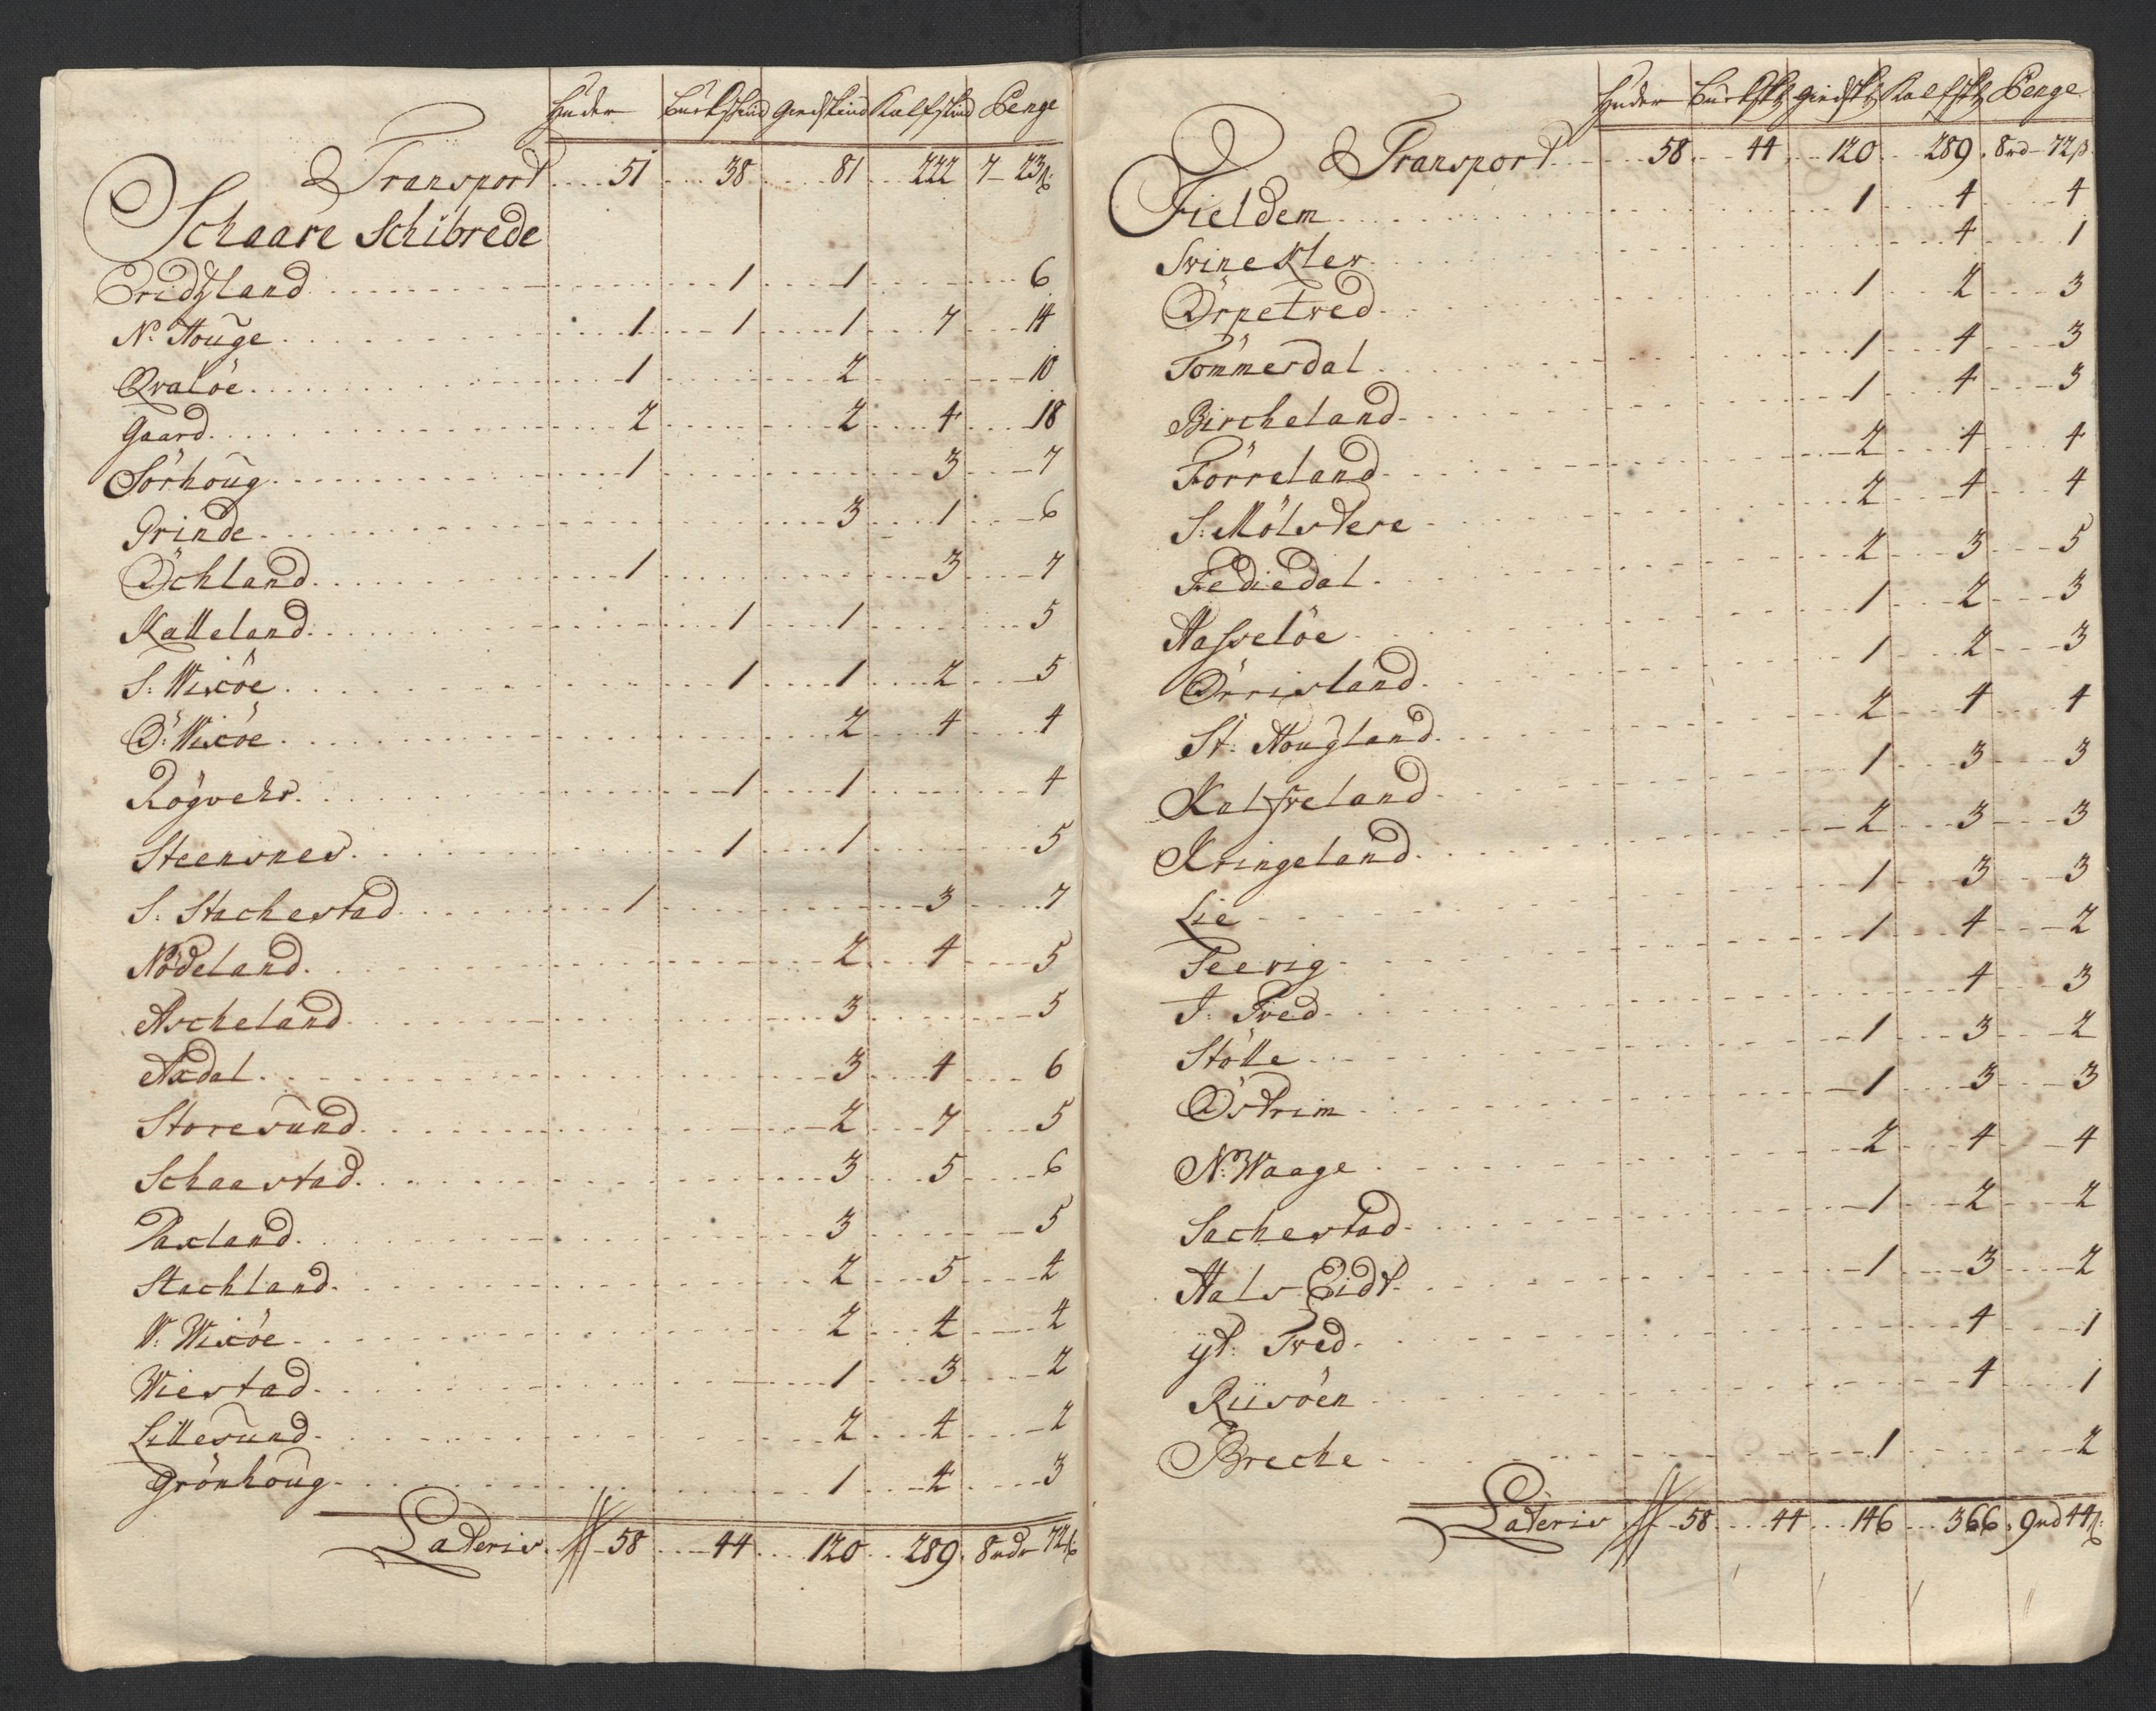 Huder Buckskind Giedskind Kalfskind Penge
Transport 51 38 81 222 7 - 23ß
Schaare Schibrede
Eridzland 1 1 6
N: Houge 1 1 1 7 14
Qvaløe 1 2 10
Gaard 2 2 4 18
Sörhoug 1 3 7
Grinde 3 1 6
Öchland 1 3 7
Kalleland 1 1 5
S: Wixöe 1 1 2 5
Ö: Wixöe 2 4 4
Rögvehr 1 1 4
Steensnes 1 1 5
S: Stachestad 1 3 7
Nödeland 2 4 5
Ascheland 3 5
Axdal 3 4 6
Storesund 2 7 5
Schaastad 3 5 6
Paxland 3 5
Stachland 2 5 4
W: Wixöe 2 4 4
Wiestad 1 3 2
Lillesund 2 4 2
Grönhoug 1 4 3
Lateris 58 44 120 289 8rdr 72ß
Huder Bucksk Giedsk Kalfsk Penge
Transport 58 44 120 289 8rd 72ß
Fieldem 1 4 4
Svinekler 4 1
Örpetved 1 2 3
Tömmerdal 1 4 3
Bircheland 1 4 3
Förreland 2 4 4
S: Mölstere 2 4 4
Fediedal 2 3 5
Hasseløe 1 2 3
Örrisland 1 2 3
St: Hougland 2 4 4
Kalfveland 1 3 3
Kringeland 2 3 3
Lie 1 3 3
Seevig 1 4 2
J: Tved 4 3
Stölle 1 3 2
Östrim 1 3 3
N: Waage 2 4 4
Sachestad 1 2 2
Hals-Eidt 1 3 2
yt: Tved 4 1
Riisöen 4 1
Breche 1 2
Lateris 58 44 146 366 9rd 44ß